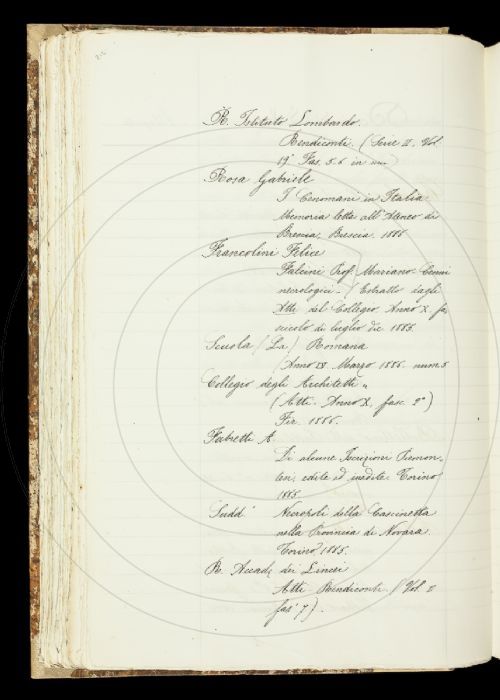 R. Istituto Lombardo.
Rendiconti. (Serie II. Vol.
19° Fas. 5.6 in uno
Rosa Gabriele
I Cenomani in Italia
Memoria letta all'Ateneo di
Brescia, Brescia. 1886
Francolini Felice
Falcini Prof. Mariano. Cenni
necrologici - (Estratto dagli
Atti del Collegio Anno X fa
scicolo di luglio dic 1885.
Scuola (La) Romana
(Anno IV Marzo 1886. num 5
Collegio degli Architetti "
(Atti. Anno X, fasc. 2°)
Fir. 1886.
Fabretti A
Di alcune Iscrizioni Piemon-
tesi edite ed inedite. Torino
1885
Sudd° Necropoli della Cascinetta
nella Provincia di Novara.
Torino 1885.
R. Accad. dei Lincei
Atti Rendiconti. (Vol. 2
fas° 7).